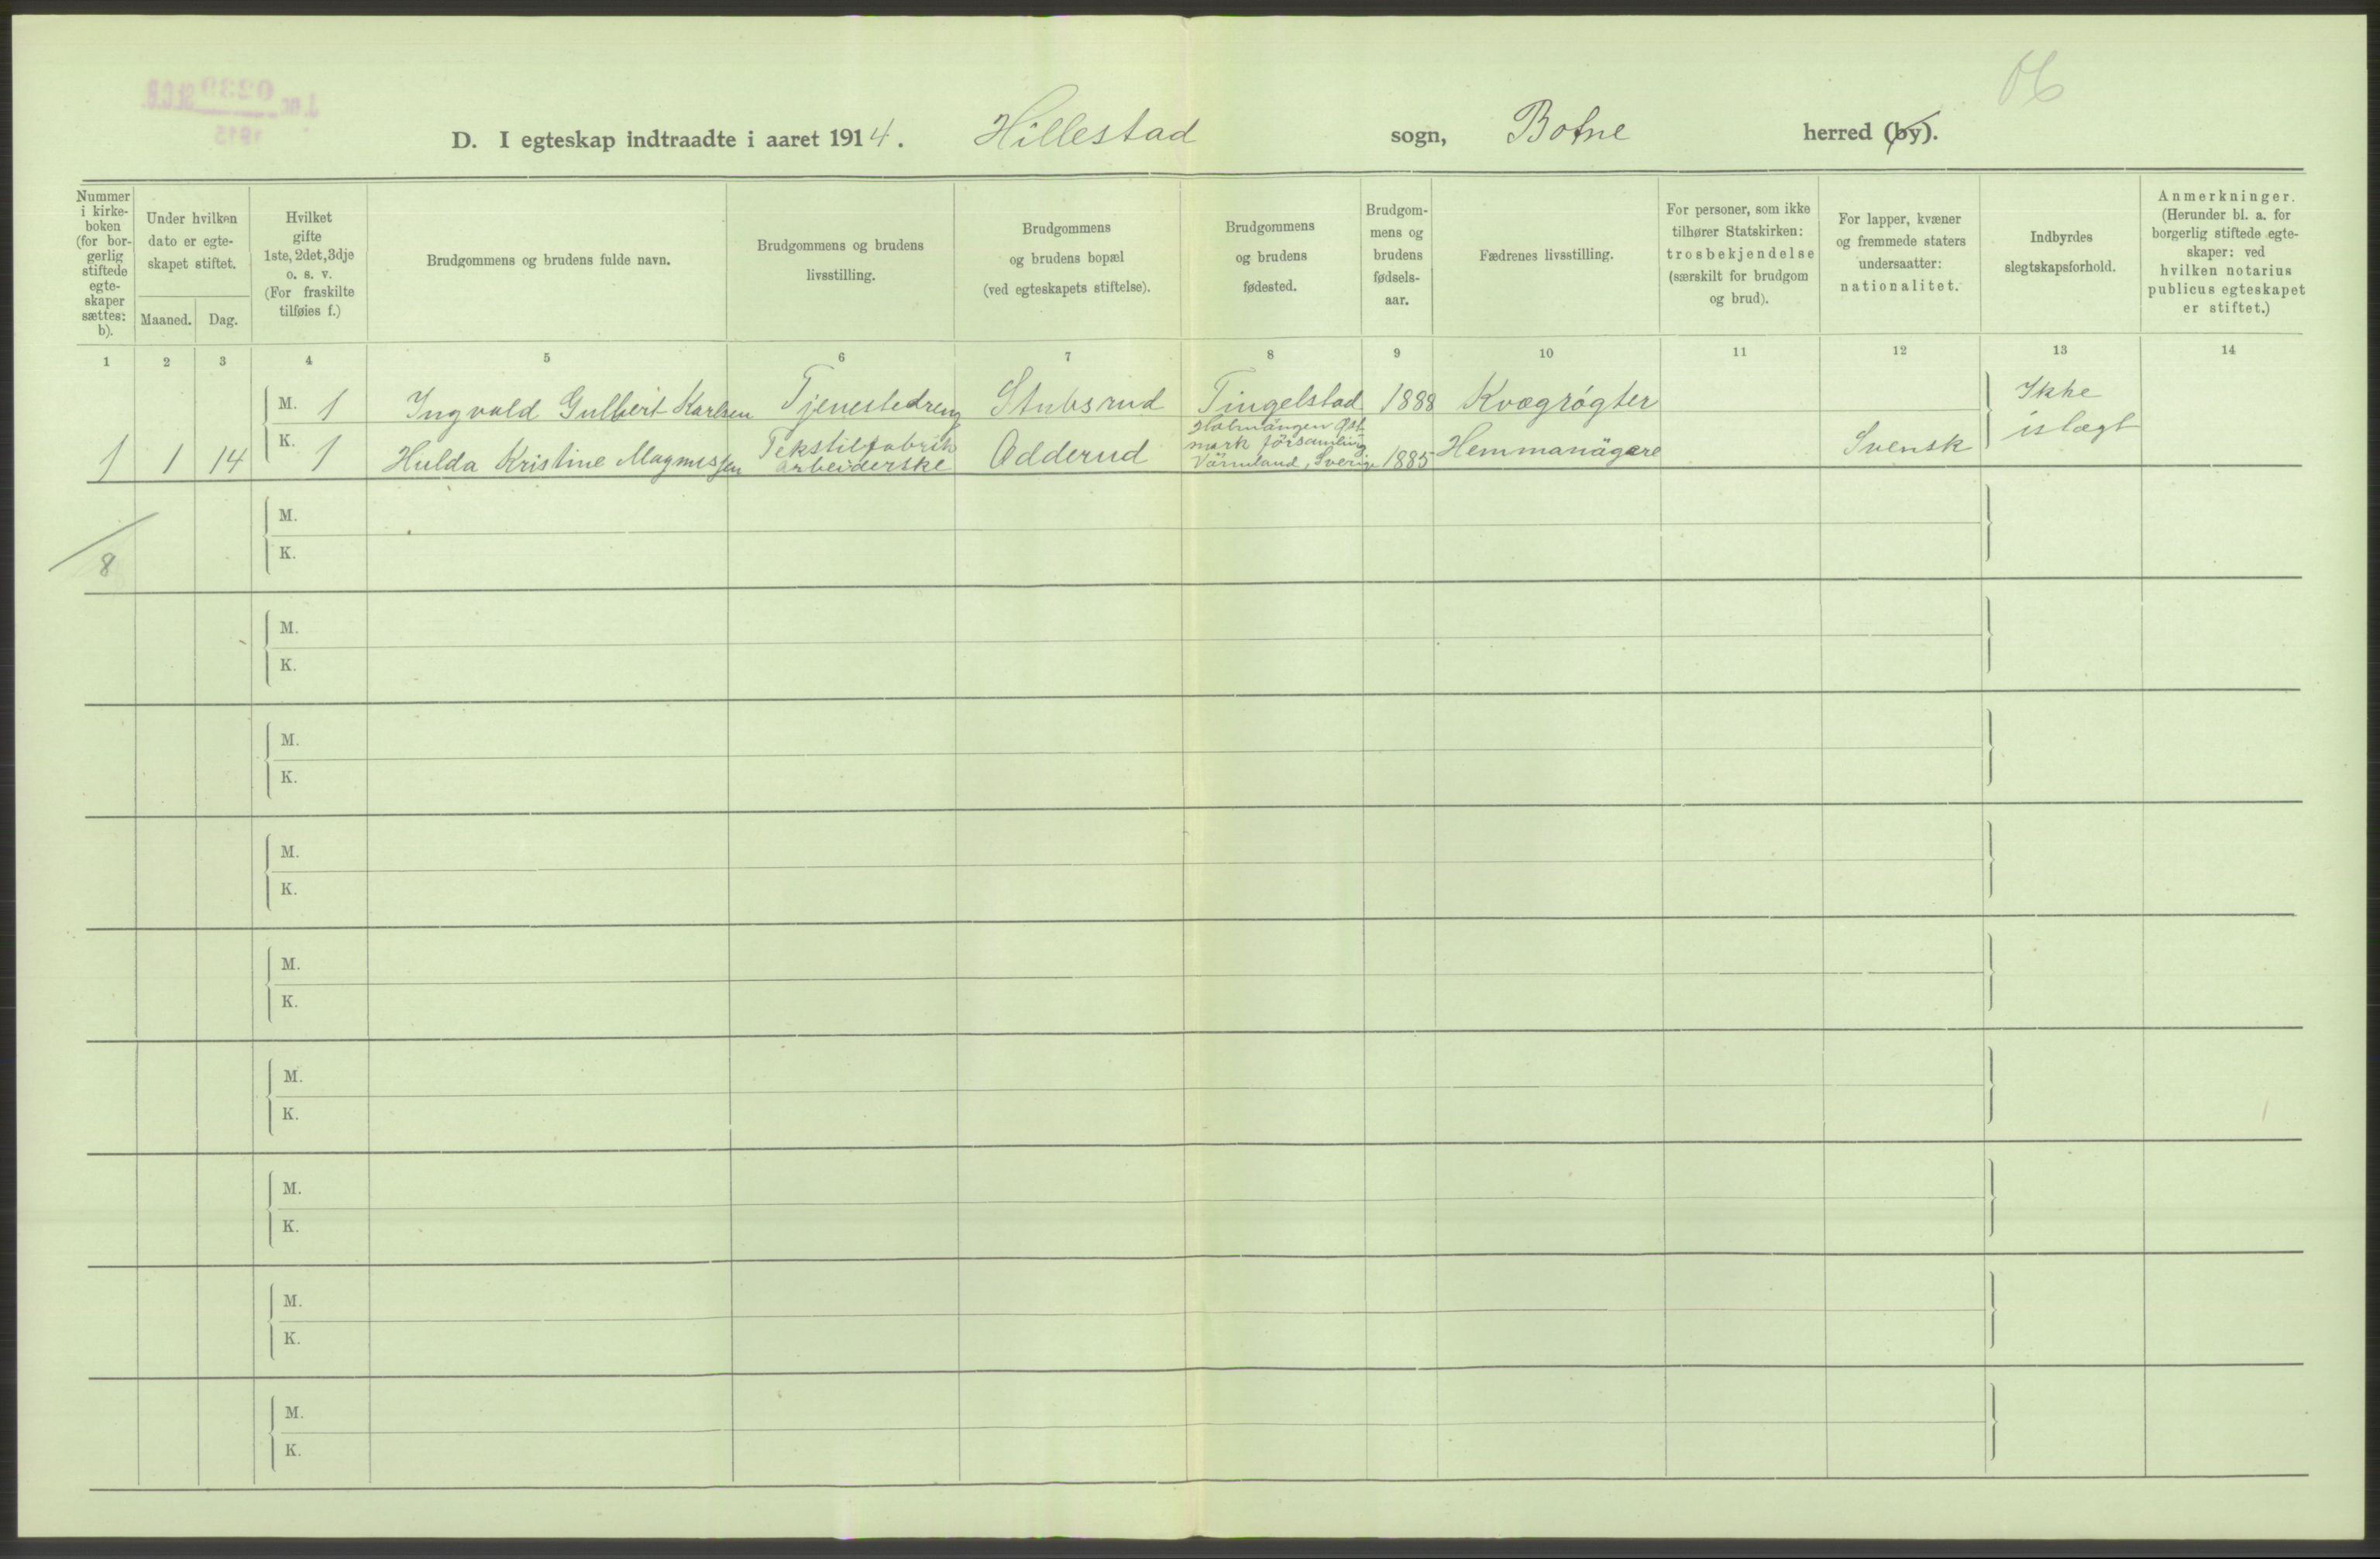 D. I egteskap indtraadte i aaret 1914. Hillestad sogn, Botne herred (by).
Nummer i kirke- boken (for bor- gerlig stiftede egte- skaper sættes: b).
Under hvilken dato er egte- skapet stiftet.
Maaned. Dag.
Hvilket gifte 1ste, 2det, 3dje o. s. v. (For fraskilte tilføies f.)
Brudgommens og brudens fulde navn.
Brudgommens og brudens livsstilling.
Brudgommens og brudens bopæl (ved egteskapets stiftelse).
Brudgommens og brudens fødested.
Brudgom- mens og brudens fødsels- aar.
Fædrenes livsstilling.
For personer, som ikke tilhører Statskirken: trosbekjendelse (særskilt for brudgom og brud).
For lapper, kvæner og fremmede staters undersaatter: nationalitet.
Indbyrdes slegtskapsforhold.
Anmerkninger. (Herunder bl. a. for borgerlig stiftede egte- skaper: ved hvilken notarius publicus egteskapet er stiftet.)
1 2 3 4 5 6 7 8 9 10 11 12 13 14
M. 1 Ingvald Gulbert Karlsen Tjenestedreng Stubsrud Tingelstad 1888 Kvægrøgter Ikke
1 1 14 K. 1 Hulda Kristine Magnussen Tekstilfabrik arbeiderske Odderud mark församling Värmland, Sverige 1885 Hemmanägare Svensk islægt
M.
8 K.
M.
K.
M.
K.
M.
K.
M.
K.
M.
K.
M.
K.
M.
K.
M.
K.